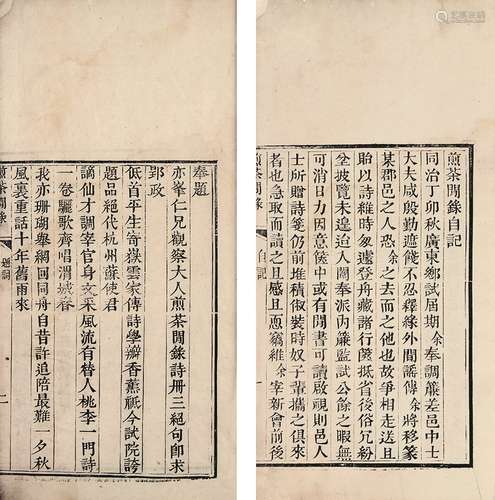 煎茶閒錄自記
同治丁卯秋廣東鄉試屆期余奉調簾差邑中士
大夫咸殷勤遮餞不忍釋緣外間謠傳余將移篆
某郡邑之人恐余之去而之他也故爭相走送且
貽以詩維時匆遽登舟藏諸行篋抵省後俗冗紛
坌披覽未遑迨入闈奉派內簾監試公餘之暇無
可消日力因意篋中或有閒書可讀啟視則邑人
士所贈詩箋仍前堆積俶裝時奴子輩攜之俱來
者也急取而讀之且感且恧竊維余宰新會前後
煎茶閒錄 自記 一
奉題
亦峯仁兄觀察大人煎茶閒錄詩冊三絕句即求
郢政
低首平生奇嶽雲家傳詩學瓣香薰祗今試院誇
題品絕代杭州蘇使君
謫仙才調宰官身文采風流有替人桃李一門詩
一卷驪歌齊唱渭城春
我亦珊瑚舉網回同舟自昔許追陪最難一夕秋
風裏重話十年舊雨來
煎茶閒錄 題詞 二